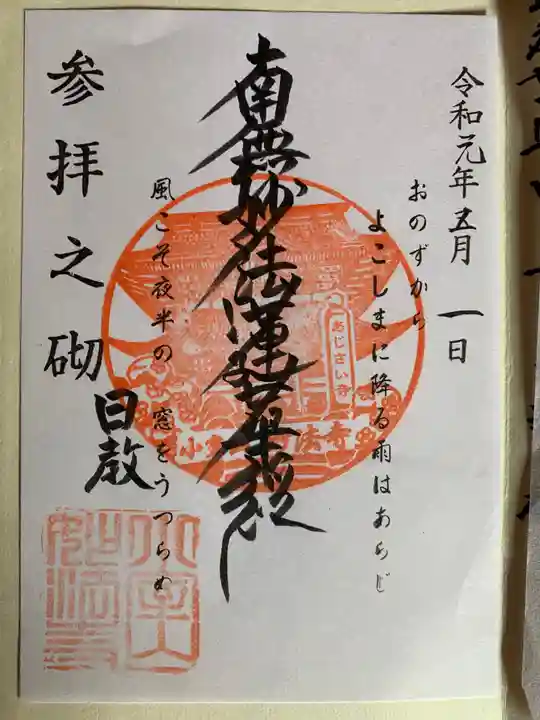 令和元年五月一日
おのずから
よこしまに降る雨はあらじ
南無妙法蓮華経
風こそ夜半の窓をうつらめ
参拝之砌
日教
あじさい寺